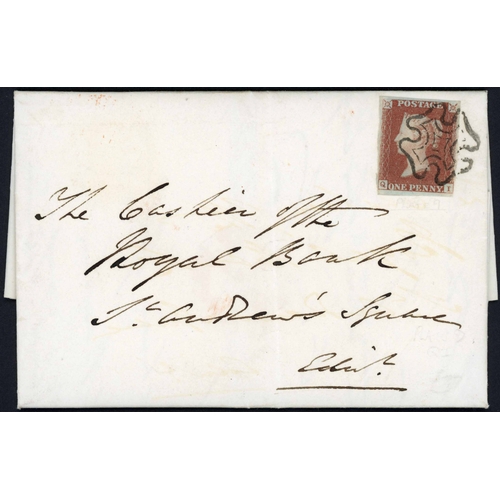 POSTAGE
ONE PENNY
The Cashier of the
Royal Bank
St Andrew's Square
Edinr